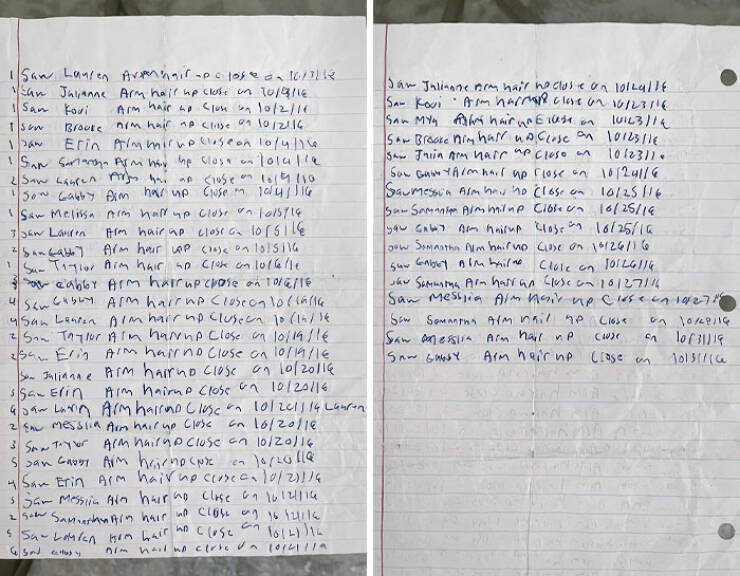 1 Saw Lauren Arm hair up close on 10/3/16
1 Saw Julianne Arm hair up close on
1 Saw Kovi Arm hair up Close on 10/2/16
1 Saw Brooke Arm hair up close on 10/2/16
1 Saw Erin Arm hair up close on 10/4/16
1 Saw Samantha Arm hair up close on 10/4/16
2 Saw Lauren Arm hair up close on
1 Saw Gabby Arm hair up Close on 10/4/16
1 Saw Melissa Arm hair up close on 10/5/16
3 Saw Lauren Arm hair up close on 10/5/16
2 Saw Gabby Arm hair up close on 10/5/16
1 Saw Taylor Arm hair up Close on 10/6/16
3 Saw Gabby Arm hair up close on 10/6/16
4 Saw Gabby Arm hair up Close on
4 Saw Lauren Arm hair up Close on
2 Saw Taylor Arm hair up Close on 10/19/16
2 Saw Erin Arm hair up Close on 10/19/16
Saw Julianne Arm hair up Close on 10/20/16
3 Saw Erin Arm hair up close on 10/20/16
Saw Arm hair up Close on 10/20/16 Lauren
2 Saw Messiia Arm hair up Close on 10/20/16
3 Saw Taylor Arm hair up Close on 10/20/16
5 Saw Gabby Arm hair up close on 10/20/16
4 Saw Erin Arm hair up close on 10/21/16
3 Saw Messiia Arm hair up Close on 10/21/16
2 Saw Samantha Arm hair up Close on 10/21/16
5 Saw Lauren Arm hair up Close on 10/21/16
6 Saw Gabby Arm hair up close on
Saw Julianne Arm hair up close on 10/24/16
Saw Kovi Arm hair up close on 10/23/16
Saw Mya Arm hair up Close on 10/23/16
Saw Brooke Arm hair up Close on 10/23/16
Saw Arm hair up close on 10/23/16
Saw Gabby Arm hair up Close on 10/24/16
Saw Messiia Arm hair up Close on 10/25/16
Saw Samantha Arm hair up Close on 10/25/16
Saw Gabby Arm hair up Close on 10/25/16
Saw Samantha Arm hair up Close on 10/26/16
Saw Gabby Arm hair up Close on 10/26/16
Saw Samantha Arm hair up Close on 10/27/16
Saw Messiia Arm hair up Close on 10/27/16
Saw Samantha Arm hair up Close on
Saw Messiia Arm hair up close on 10/31/16
Saw Gabby Arm hair up Close on 10/31/16